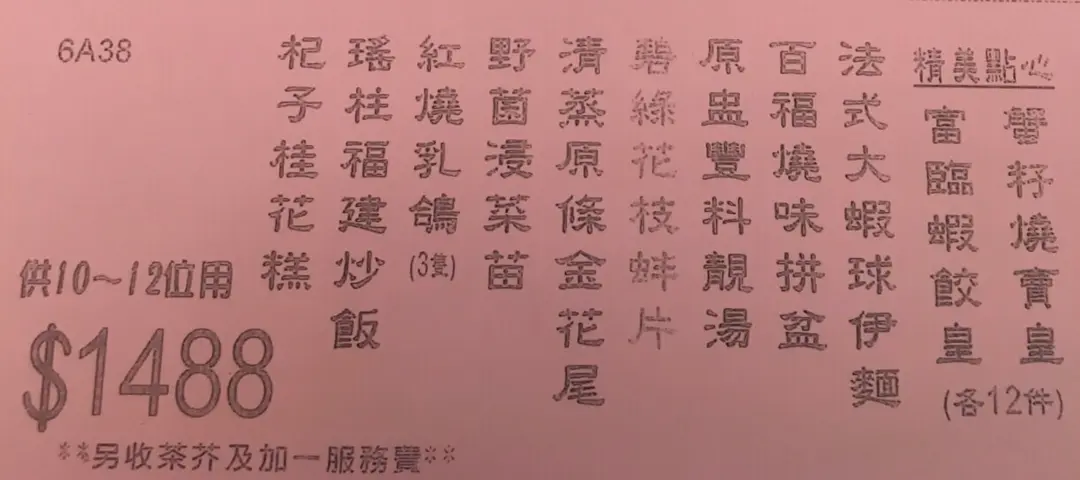 精美點心
蟹籽燒賣皇
富臨蝦餃皇
(各12件)
法式大蝦球伊麵
百福燒味拼盆
原盅豐料靚湯
碧綠花枝蚌片
清蒸原條金花尾
野菌浸菜苗
紅燒乳鴿
(3隻)
瑤柱福建炒飯
杞子桂花糕
6A38
供10～12位用
$1488
**另收茶芥及加一服務費**